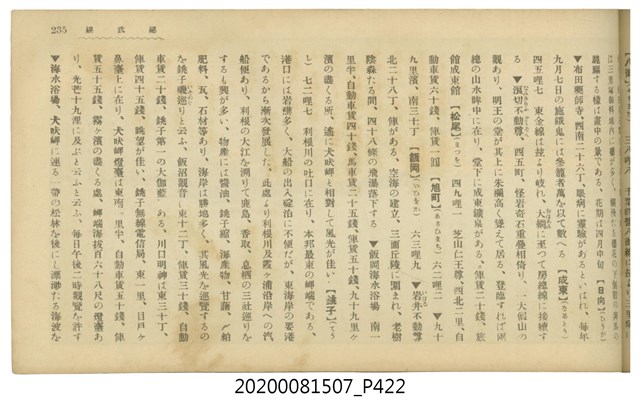 235 線武總
▼布田藥師寺、西南二十六丁、眼病に靈驗があるといはれ、毎年
九月七日の施餓鬼には參籠者萬を以て數へる 【成東】(なるとう)
四五哩七 東金線は玆より岐れ、大網に至つて房總線に接續す
る ▼浪切不動尊、西五町、怪岩奇石重疊相倚り、一大假山の
觀あり、明王の堂が其上に朱欄高く聳えて居る、登臨すれば南
總の山水眸中に在り、堂下に成東鑛泉がある、俥賃二十錢、旅
館成東館 【松尾】(まつを) 四九哩一 芝山仁王尊、西北二里、自
動車賃六十錢、俥賃一圓 【旭町】(あさひまち) 六二哩二 ▼九十
九里濱、南三十丁 【飯岡】(いひをか) 六三哩九 ▼岩井不動尊
北二十八丁、俥がある、空海の建立、三面丘陵に圍まれ、老樹
陰森たる間、四十八條の飛瀑落下する ▼飯岡海水浴場、南一
里半、自動車賃四十錢、馬車賃二十五錢、俥賃九十錢、九十九里ヶ
濱の盡くる所、遙に犬吠岬と相對して風光が佳い 【銚子】(てう
し) 七二哩七 利根川の吐口に在り、本邦最東の岬端である、
港口には岩礁多く、大船の出入碇泊に不便だが、東海岸の要港
であるから漸次發展した、此處より利根川及霞ヶ浦沿岸への汽
船便あり、利根の大江を溯りて鹿島、香取、息栖の三社巡りを
するも興が多い、物產には醬油、銚子縮、海產物、甘藷、〆粕
肥料、瓦、石材等あり、海岸は勝地多く、其風光を巡覽するの
を銚子磯巡りと云ふ、飯沼觀音、東十二丁、俥賃三十錢、自動
車賃二十錢、銚子第一の大伽藍 ある、川口明神は東三十丁、
俥賃四十五錢、眺望が佳い、銚子無線電信局、東一里、目戸ヶ
鼻臺上に在り、犬吠岬燈臺は東南一里半、自動車賃五十錢、俥
賃五十五錢、霧ヶ濱の盡くる處、岬端海拔百六十八尺の燈臺あ
り、光芒十九浬に及ぶと云ふと云ふ、毎日午後二時觀覽を許す
▼海水浴場、犬吠岬に連る一帶の松林を後にし漂渺たる海波を
20200081507_P422